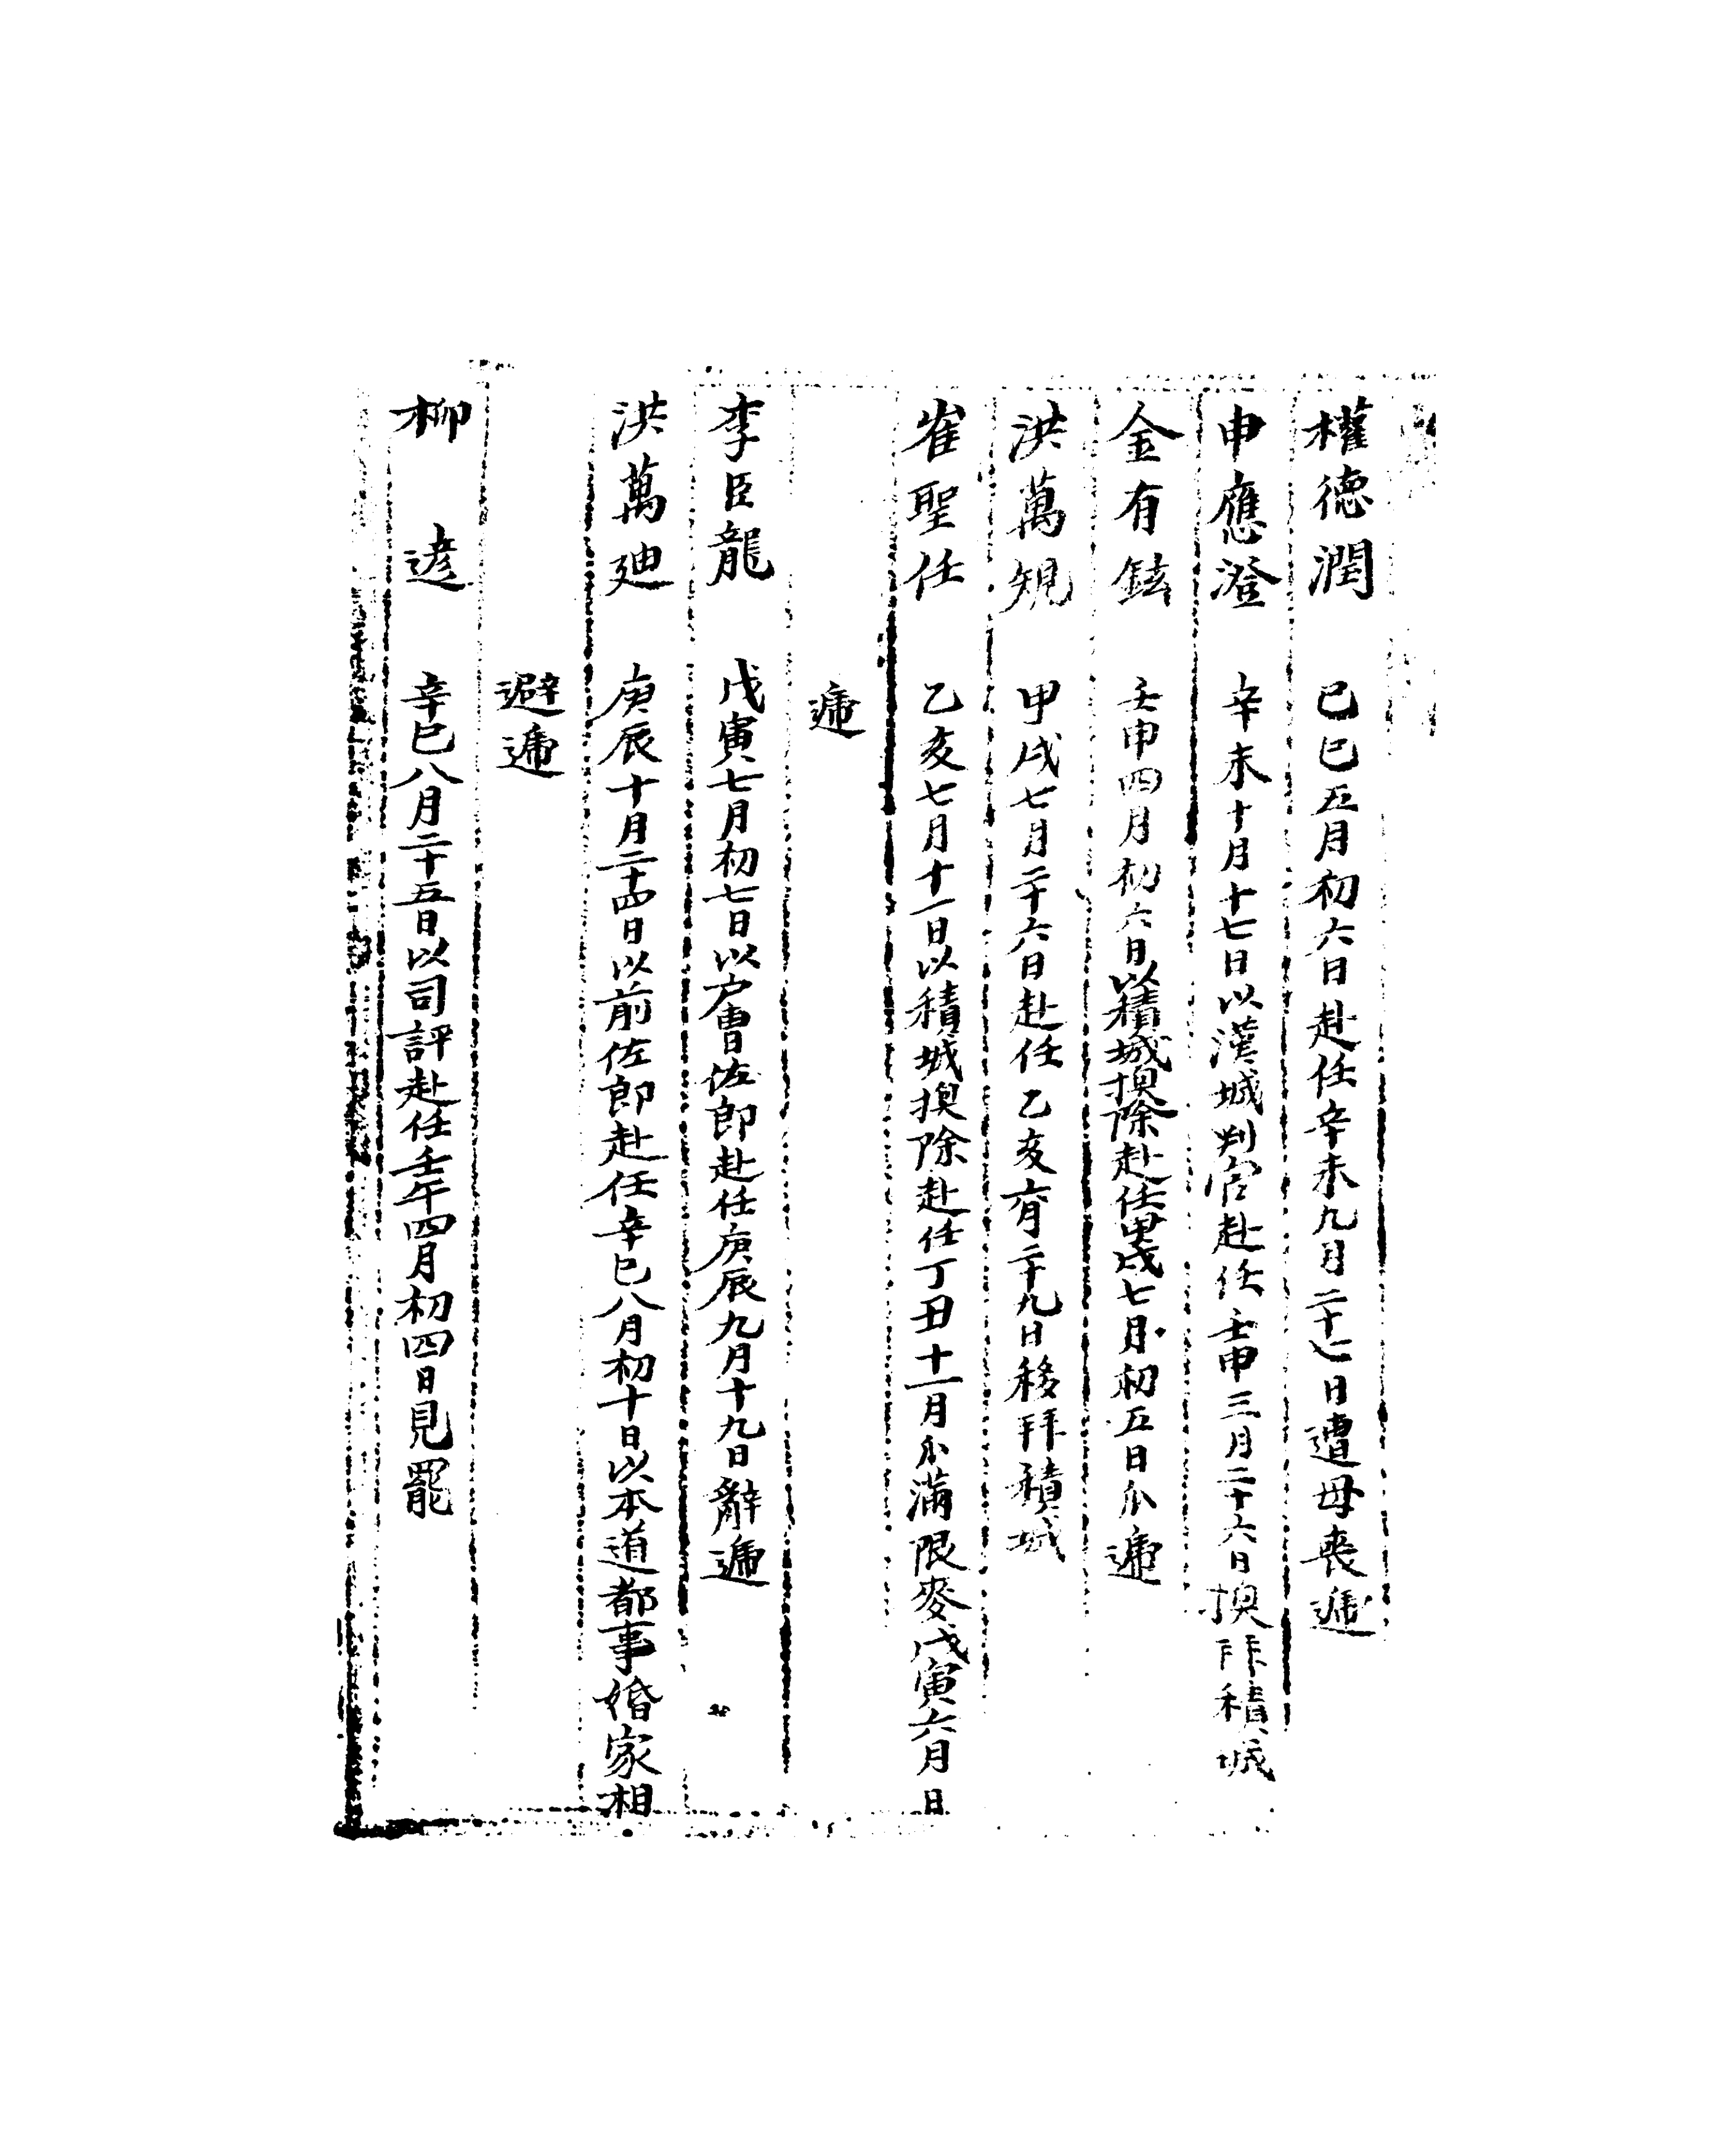 權德潤 己巳五月初六日赴任辛未九月二十七日遭母喪遞
申應澄 辛未十月十七日以漢城判官赴任壬申三月二十六日換拜積城
金有鉉 壬申四月初六日以積城換除赴任甲戌七月初五日瓜遞
洪萬規 甲戌七月二十六日赴任乙亥六月二十九日移拜積城
崔聖任 乙亥七月十一日以積城換除赴任丁丑十一月瓜滿限麥戊寅六月日
遞
李臣龍 戊寅七月初七日以户曹佐郎赴任庚辰九月十九日辭遞
洪萬廸 庚辰十月二十四日以前佐郎赴任辛巳八月初十日以本道都事婚家相
避遞
柳 辛巳八月二十五日以司評赴任壬午四月初四日見罷